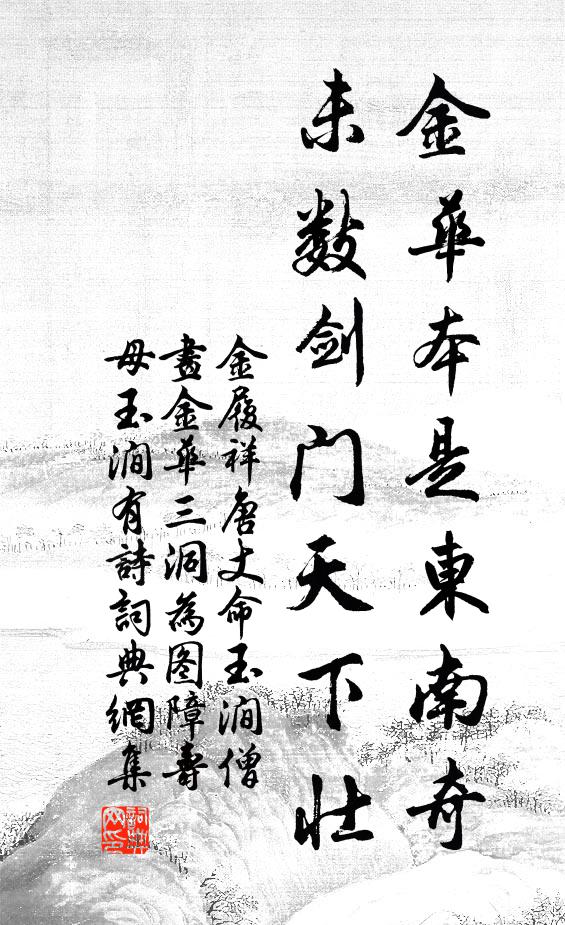 金華本是東南奇
未數劍门天下壯
金履祥唐丈命玉澗僧
畫金華三洞為图障壽
母玉澗有詩詞典網集